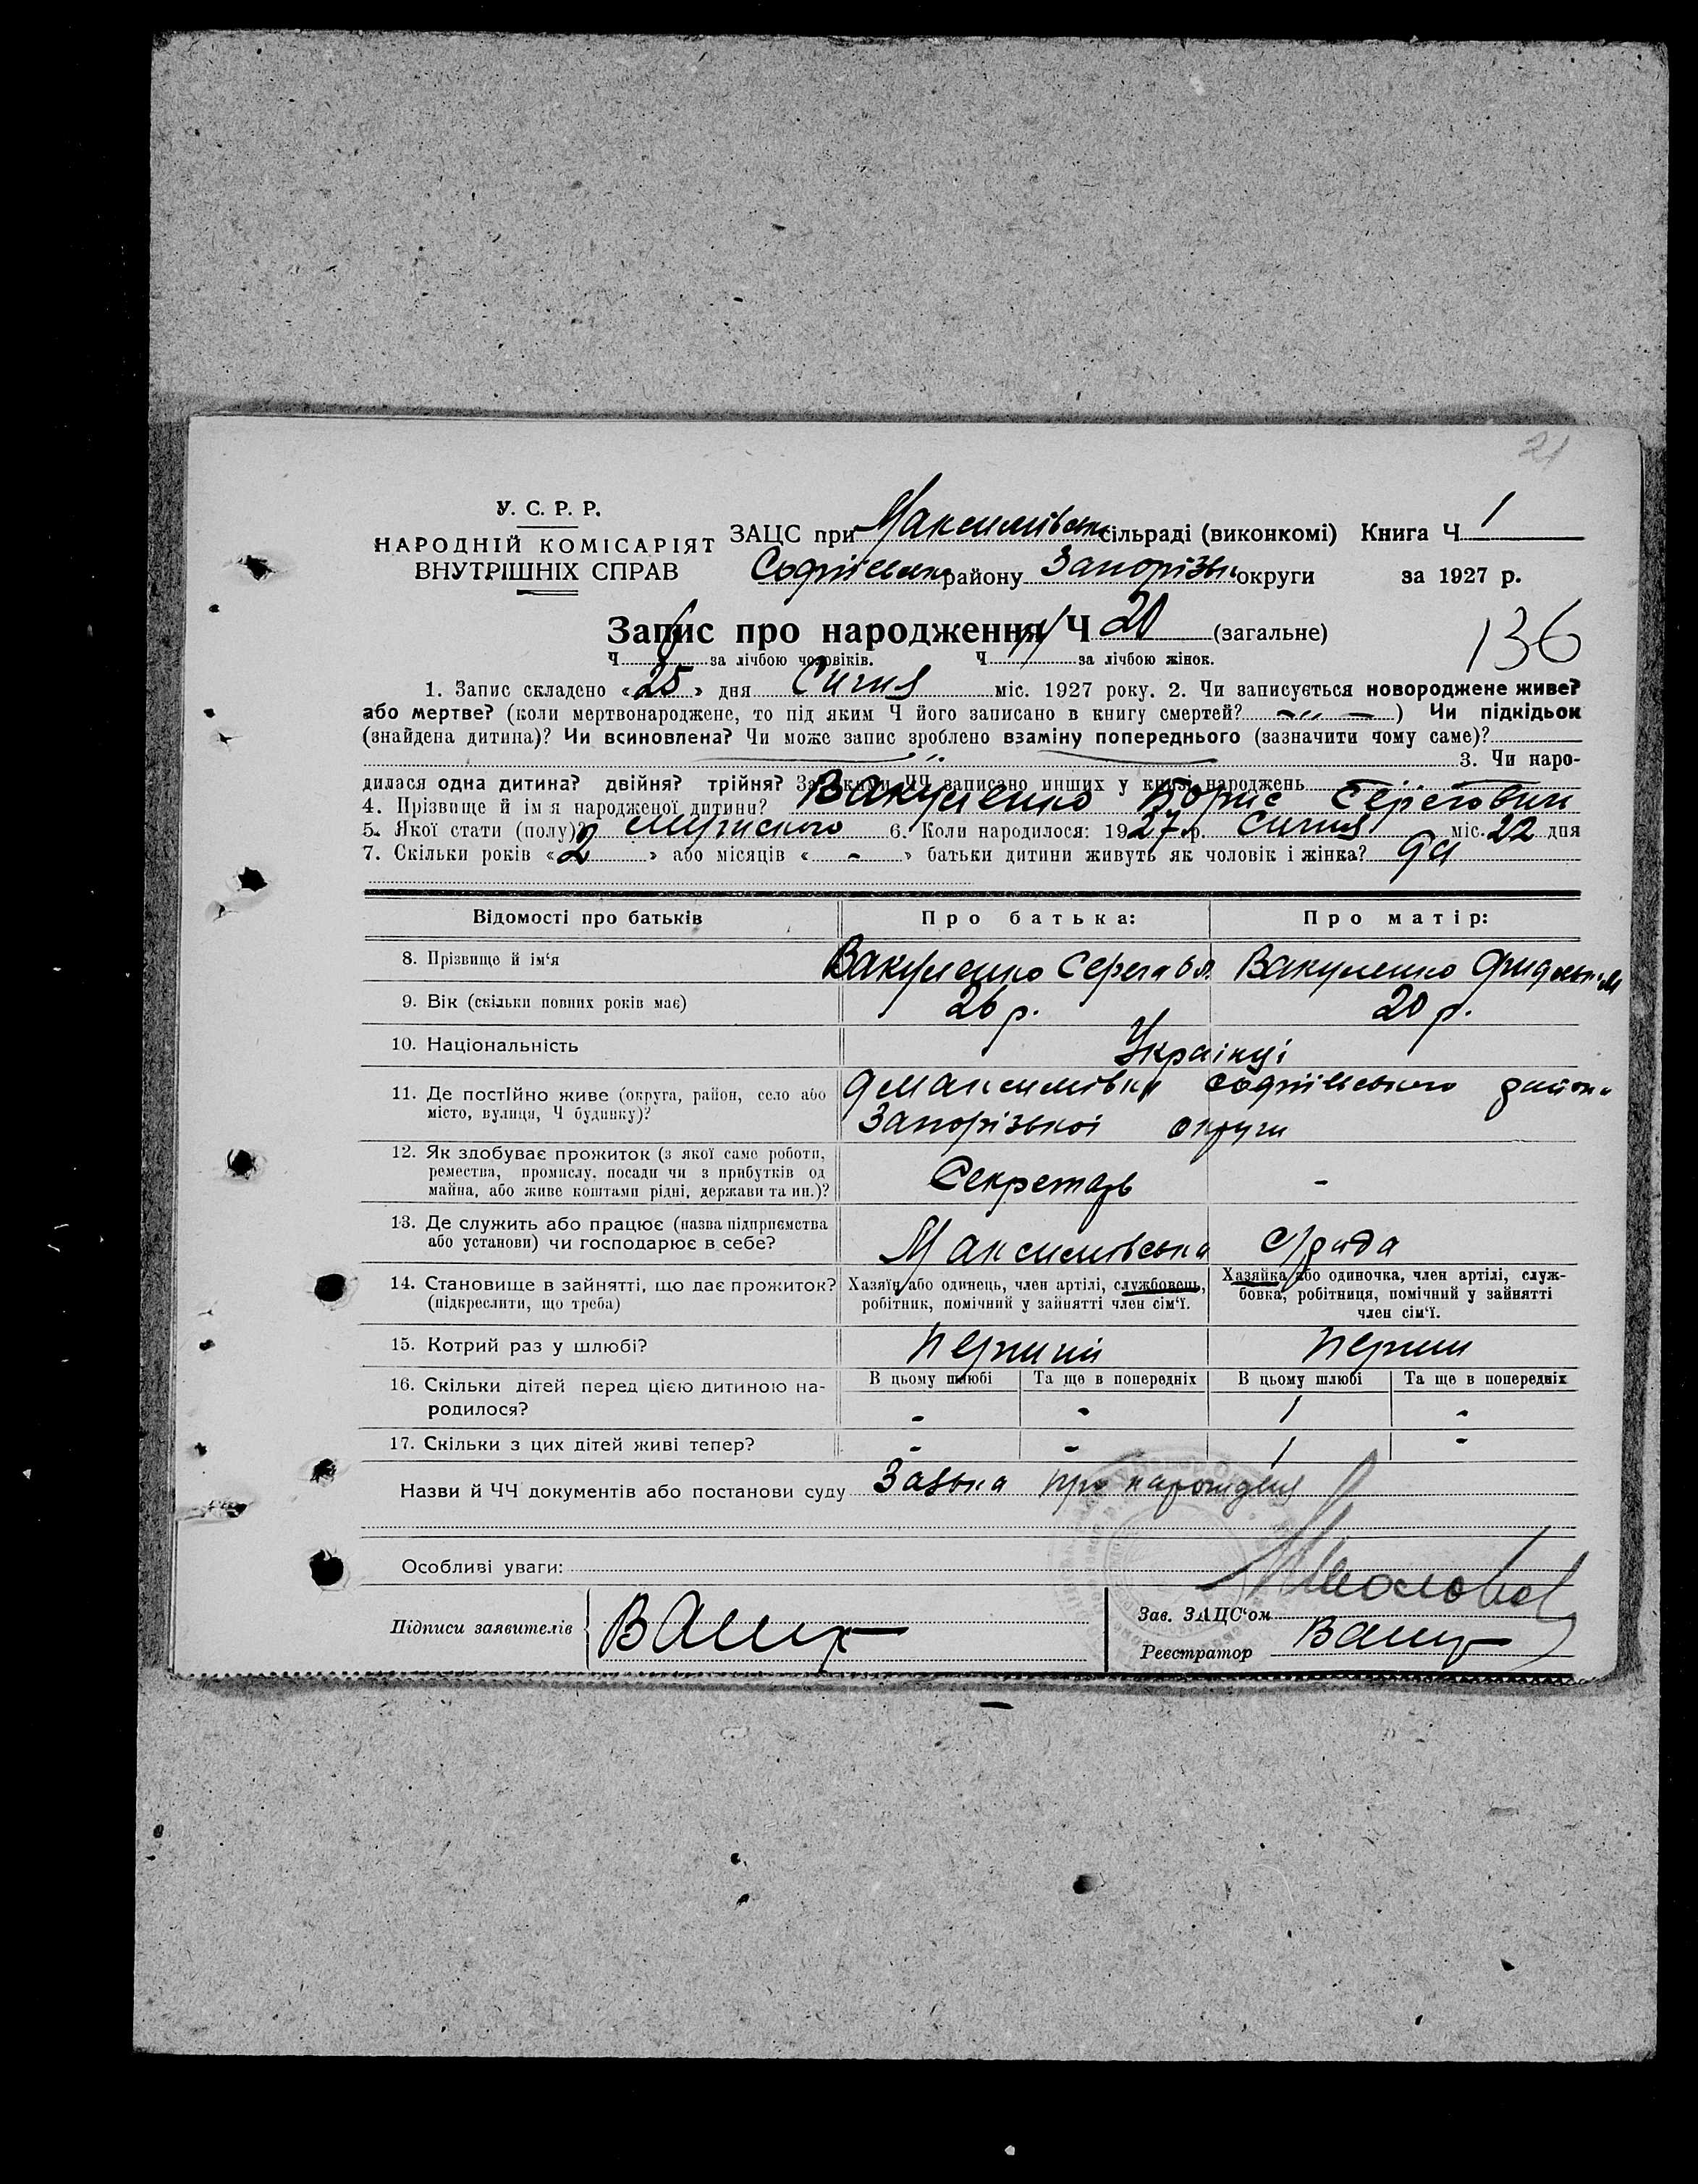 21
У. С. Р. Р.
НАРОДНІЙ КОМІСАРІЯТ
ВНУТРІШНІХ СПРАВ
ЗАЦС при Максимівськ сільраді (виконкомі) Книга Ч. 1
Софіївськ району Запорізьк округи за 1927 р.
Запис про народження Ч 20 (загальне)
136
Ч за лічбою чоловіків. Ч за лічбою жінок.
1. Запис складено «25» дня Січня міс. 1927 року. 2. Чи записується новороджене живе?
або мертве? (коли мертвонароджене, то під яким Ч його записано в книгу смертей? —„—) Чи підкідьок
(знайдена дитина)? Чи всиновлена? Чи може запис зроблено взаміну попереднього (зазначити чому саме)?
3. Чи наро-
дилася одна дитина? двійня? трійня? За якими ЧЧ записано инших у книзі народжень
4. Прізвище й ім'я народженої дитини? Вакуленко Борис Сергієвич
5. Якої стати (полу)? мужиского 6. Коли народилося: 1927 р. Січня міс. 22 дня
7. Скільки років «2» або місяців «-» батьки дитини живуть як чоловік і жінка? да
Відомості про батьків Про батька: Про матір:
8. Прізвище й ім'я Вакуленко Вакуленко
9. Вік (скільки повних років має) 26 р. 20 р.
10. Національність Українці
11. Де постійно живе (округа, район, село або місто, вулиця, Ч будинку)? Софіївського района
Запорізької округи
12. Як здобуває прожиток (з якої саме роботи,
ремества, промислу, посади чи з прибутків од
майна, або живе коштами рідні, держави та ин.)? Секретарь -
13. Де служить або працює (назва підприємства
або установи) чи господарює в себе? Максимівська с/рада
14. Становище в зайнятті, що дає прожиток?
(підкреслити, що треба)
Хазяїн або одинець, член артілі, службовець,
робітник, помічний у зайнятті член сім'ї.
Хазяйка або одиночка, член артілі, служ-
бовка, робітниця, помічний у зайнятті
член сім'ї.
15. Котрий раз у шлюбі? перший перши
16. Скільки дітей перед цією дитиною на-
родилося?
В цьому шлюбі Та ще в попередніх В цьому шлюбі Та ще в попередніх
- - 1 -
17. Скільки з цих дітей живі тепер? - - 1 -
Назви й ЧЧ документів або постанови суду Заявка про народженя
Особливі уваги:
Підписи заявителів
Зав. ЗАЦС'ом
Реєстратор